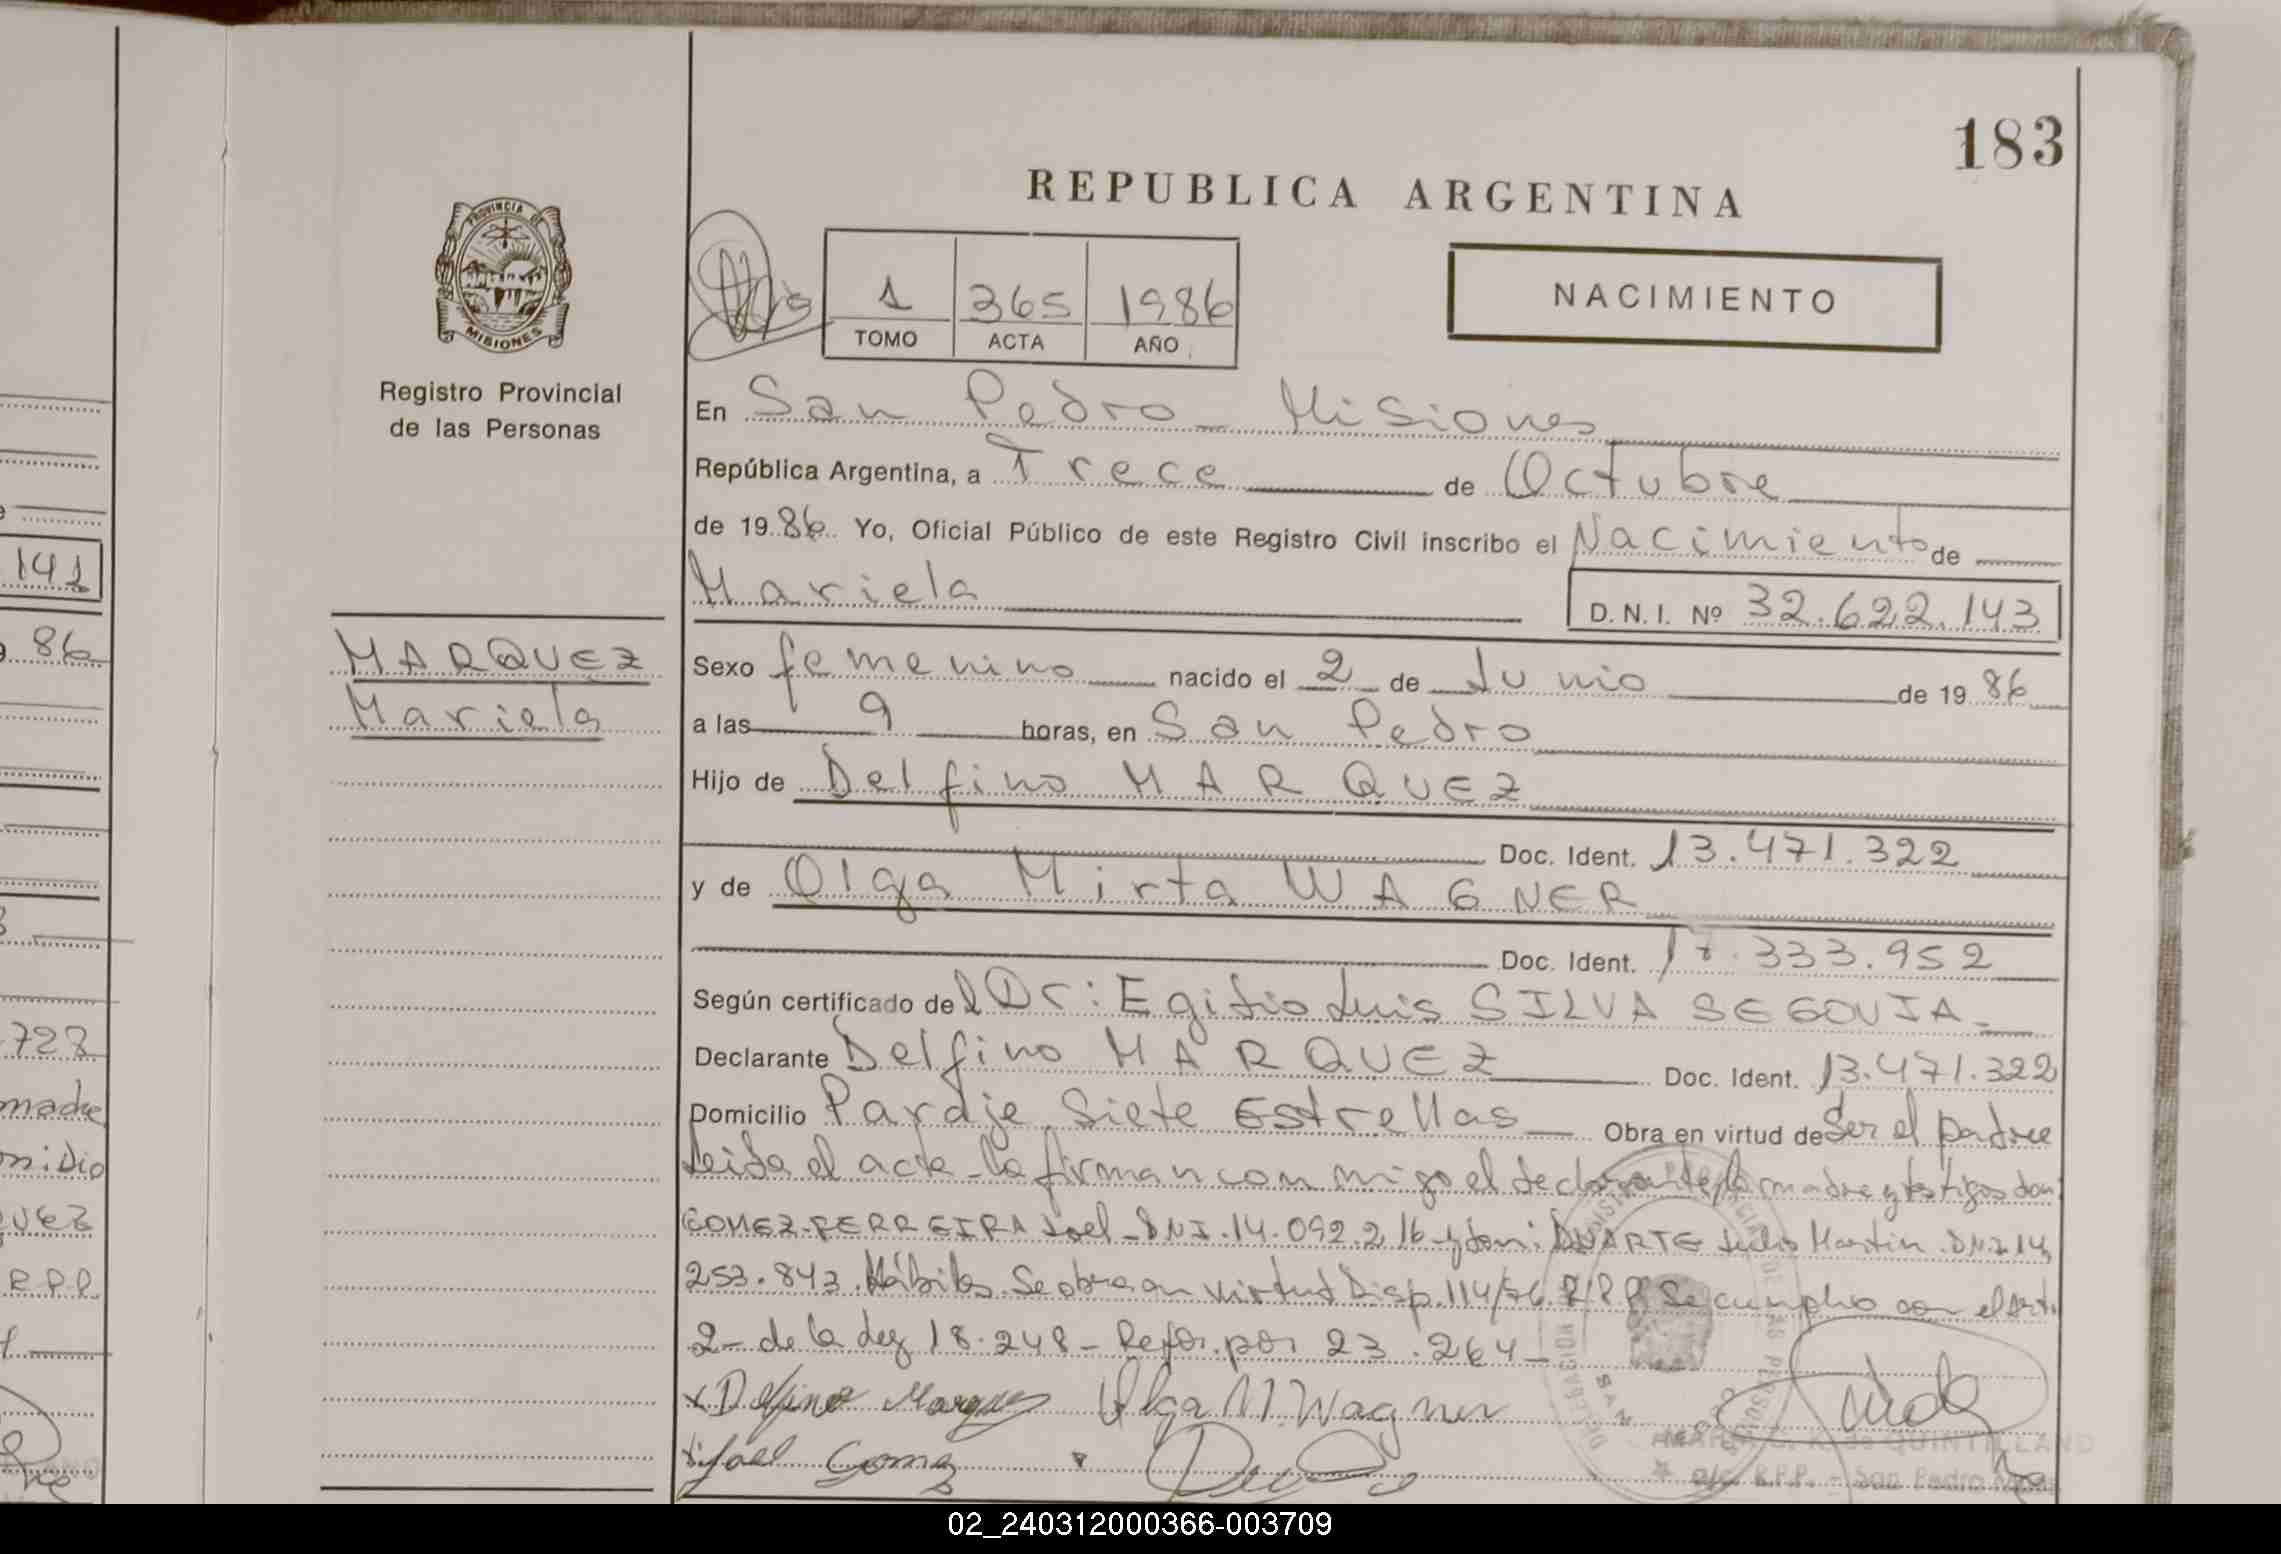 183
REPUBLICA ARGENTINA
PROVINCIA DE
MISIONES
Registro Provincial
de las Personas
1 365 1986
TOMO ACTA AÑO
NACIMIENTO
En San Pedro - Misiones
República Argentina, a Trece de Octubre
de 1986 Yo, Oficial Público de este Registro Civil inscribo el Nacimiento de
Mariela D.N.I. Nº 32.622.143
MARQUEZ
Mariela
Sexo femenino nacido el 2 de Junio de 1986
a las 9 horas, en San Pedro
Hijo de Delfino MARQUEZ
Doc. Ident. 13.471.322
y de Olga Mirta WAGNER
Doc. Ident. 17.333.952
Según certificado del Dr: Egitio Luis SILVA SEGOVIA-
Declarante Delfino MARQUEZ Doc. Ident. 13.471.322
Domicilio Paraje Siete Estrellas Obra en virtud de Ser el padre
Leida el acta - la firman con migo el declarante, la madre y testigos don:
GOMEZ FERREIRA Joel - DNI. 14.092.216 y don: DUARTE Julio Martin. DNI 14.
253.843. Hábiles. Se obra en virtud Disp. 114/76. R.P.P. Se cumplio con el art.
2- de la Ley 18.248 - Refor. por 23.264-
x Delfino Marquez Olga M. Wagner
Joel Gomez
QUINTILLAND
a/c. R.P.P. - San Pedro
141
86
728
madre
UEZ
R.P.P.
02_240312000366-003709